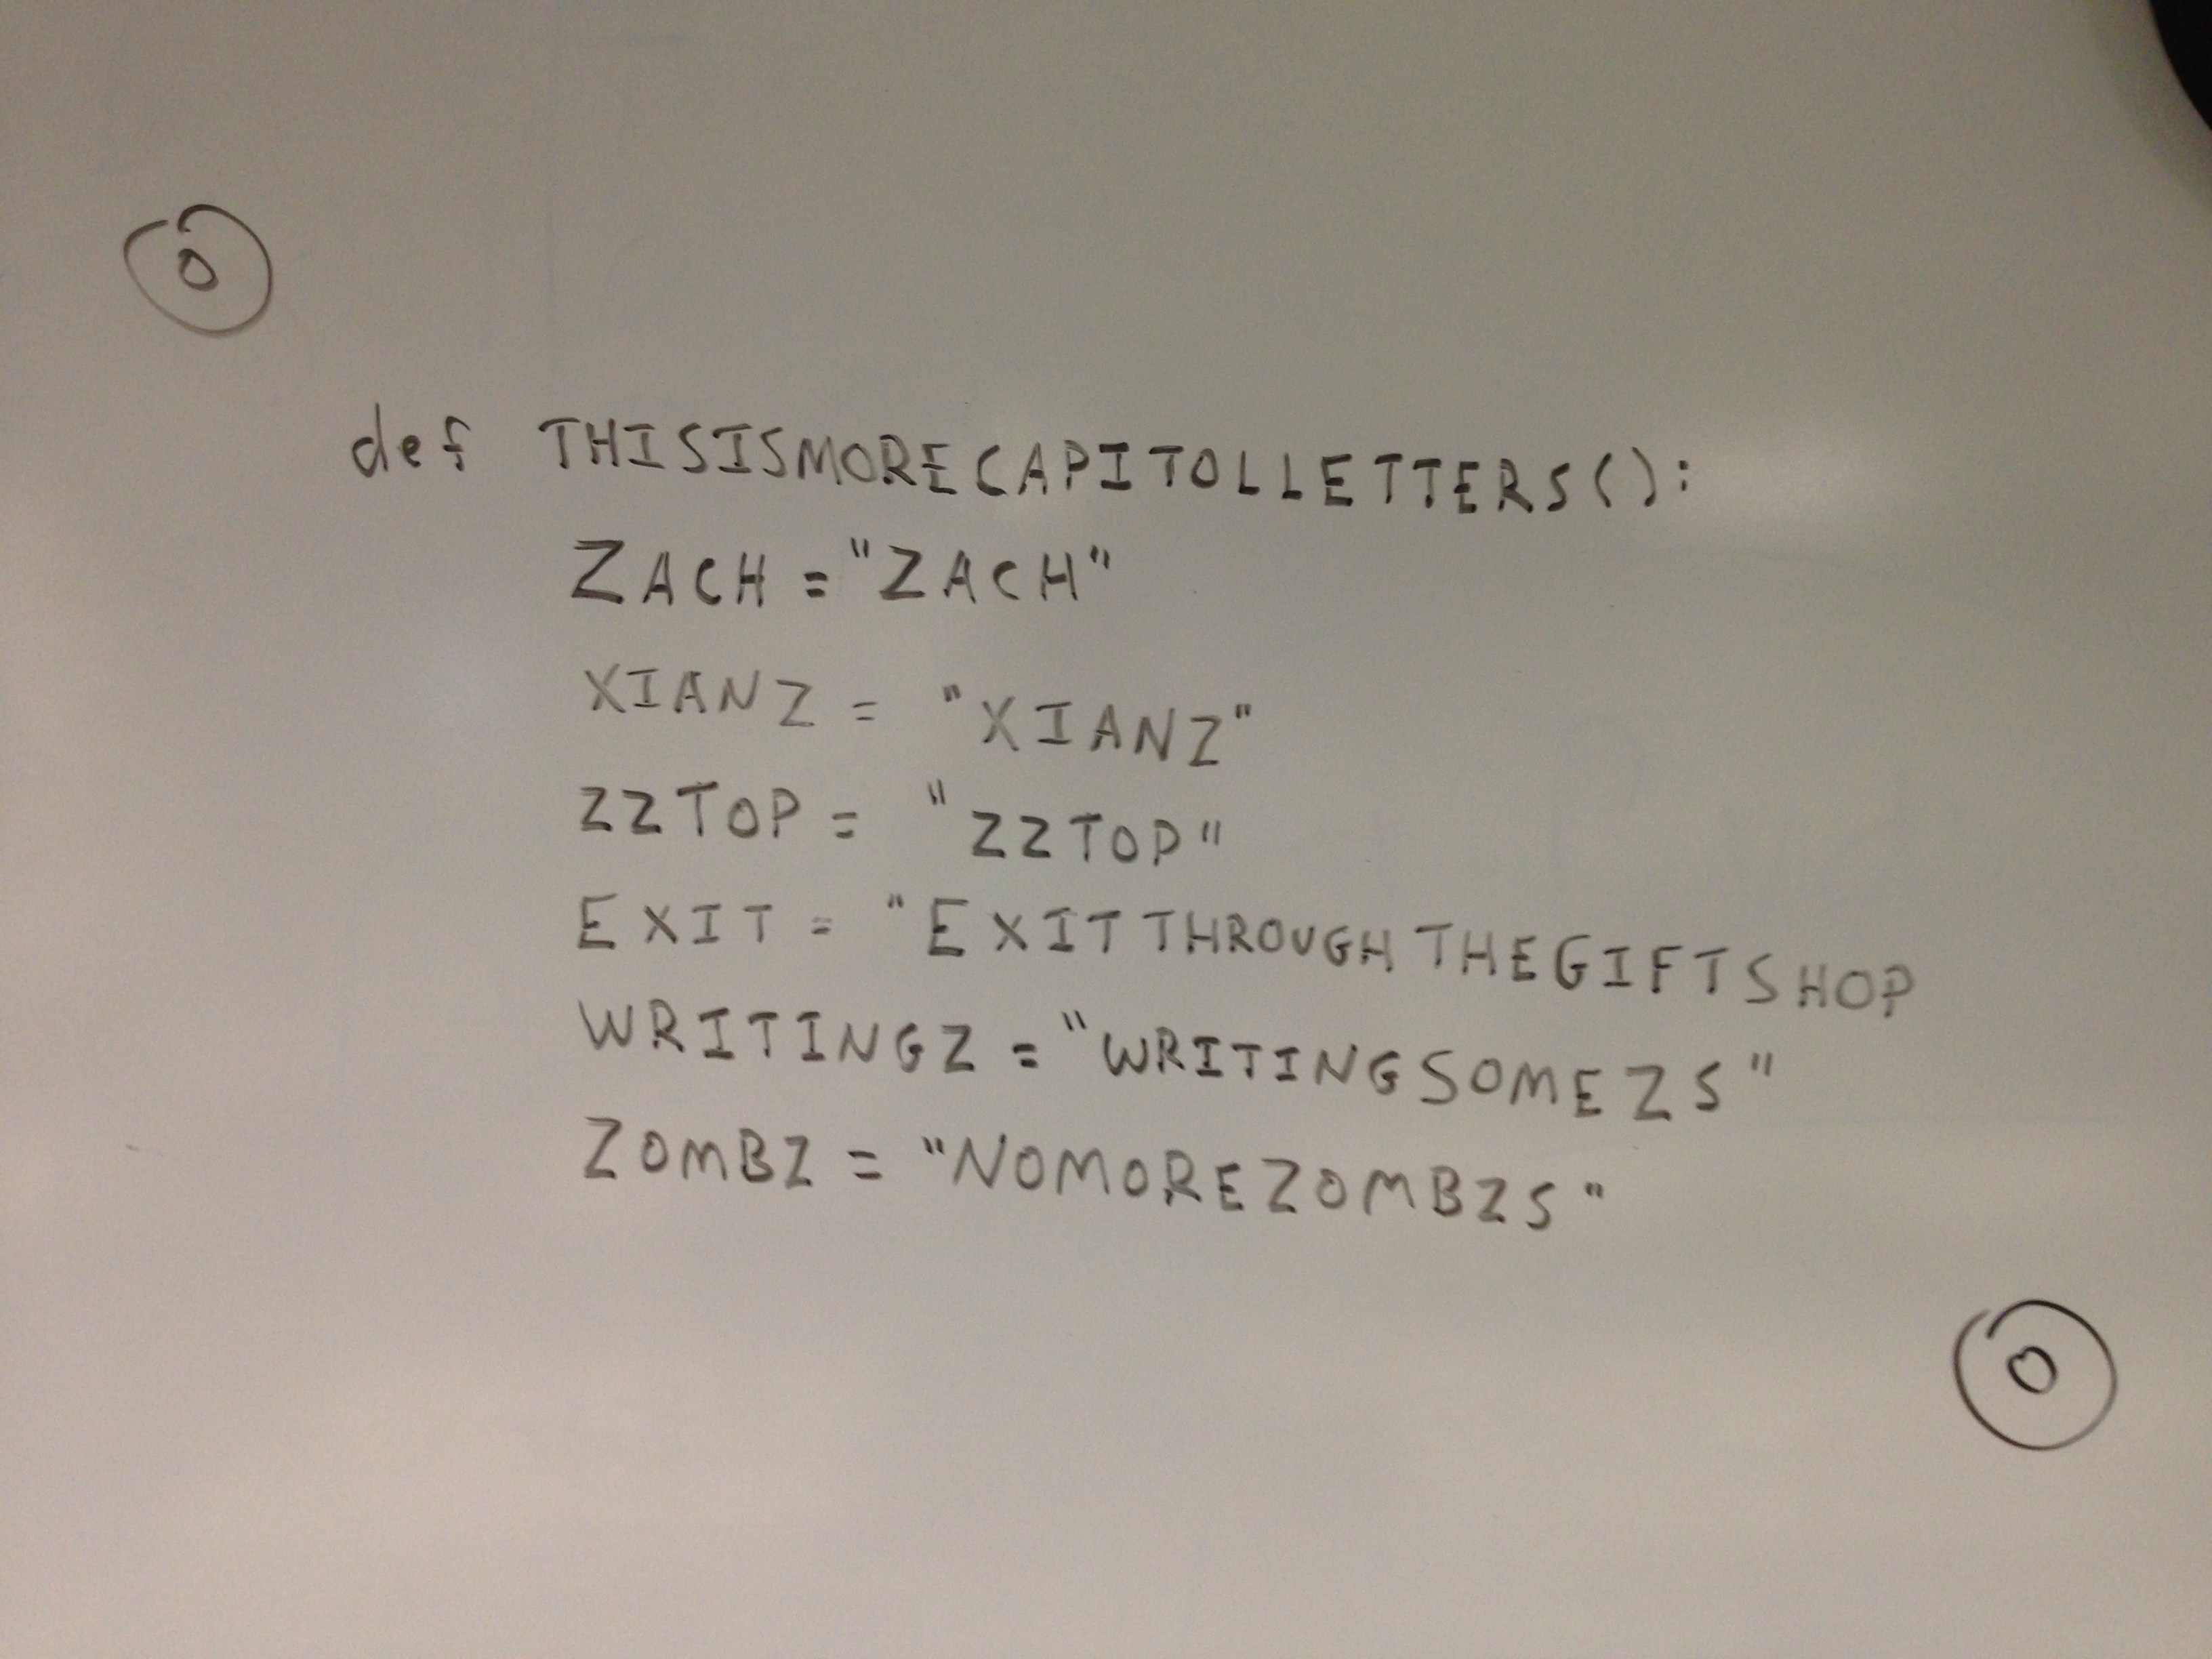 0
def THISISMORECAPITOLLETTERS():
ZACH = "ZACH"
XIANZ = "XIANZ"
ZZTOP = "ZZTOP"
EXIT = "EXITTHROUGHTHEGIFTSHOP
WRITINGZ = "WRITINGSOMEZS"
ZOMBZ = "NOMOREZOMBZS"
0